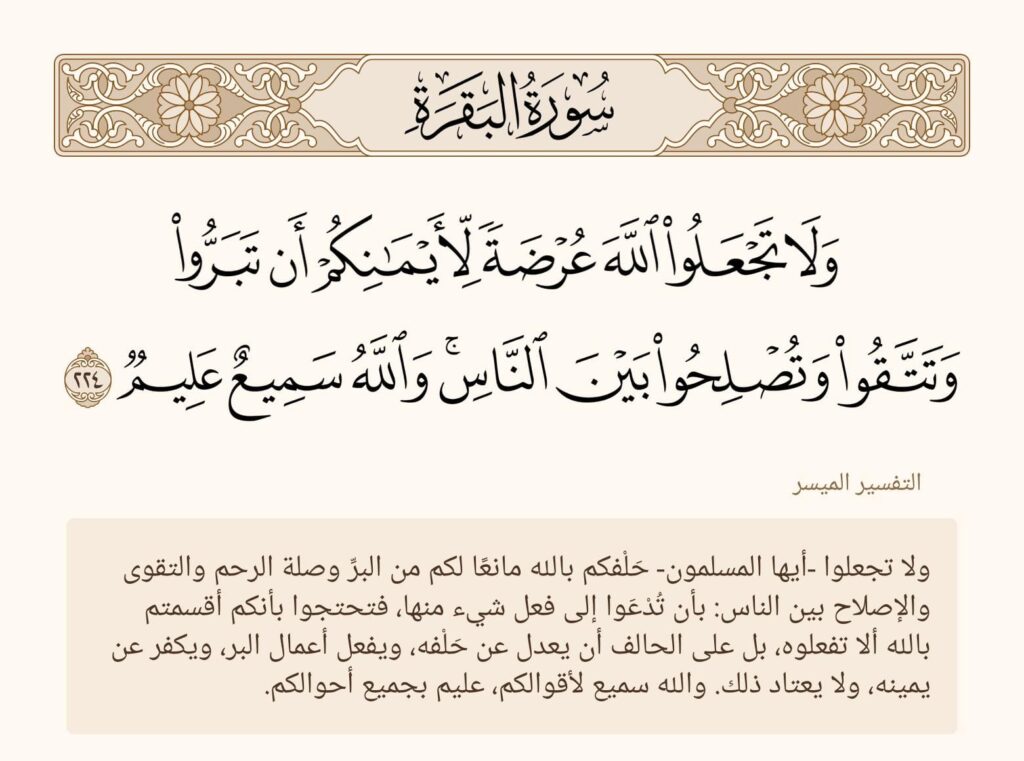 سُورَةُ البَقَرَةِ
وَلَا تَجۡعَلُواْ ٱللَّهَ عُرۡضَةٗ لِّأَيۡمَٰنِكُمۡ أَن تَبَرُّواْ
وَتَتَّقُواْ وَتُصۡلِحُواْ بَيۡنَ ٱلنَّاسِۚ وَٱللَّهُ سَمِيعٌ عَلِيمٞ ٢٢٤
التفسير الميسر
ولا تجعلوا -أيها المسلمون- حَلْفكم بالله مانعًا لكم من البرِّ وصلة الرحم والتقوى
والإصلاح بين الناس: بأن تُدْعَوا إلى فعل شيء منها، فتحتجوا بأنكم أقسمتم
بالله ألا تفعلوه، بل على الحالف أن يعدل عن حَلْفه، ويفعل أعمال البر، ويكفر عن
يمينه، ولا يعتاد ذلك. والله سميع لأقوالكم، عليم بجميع أحوالكم.